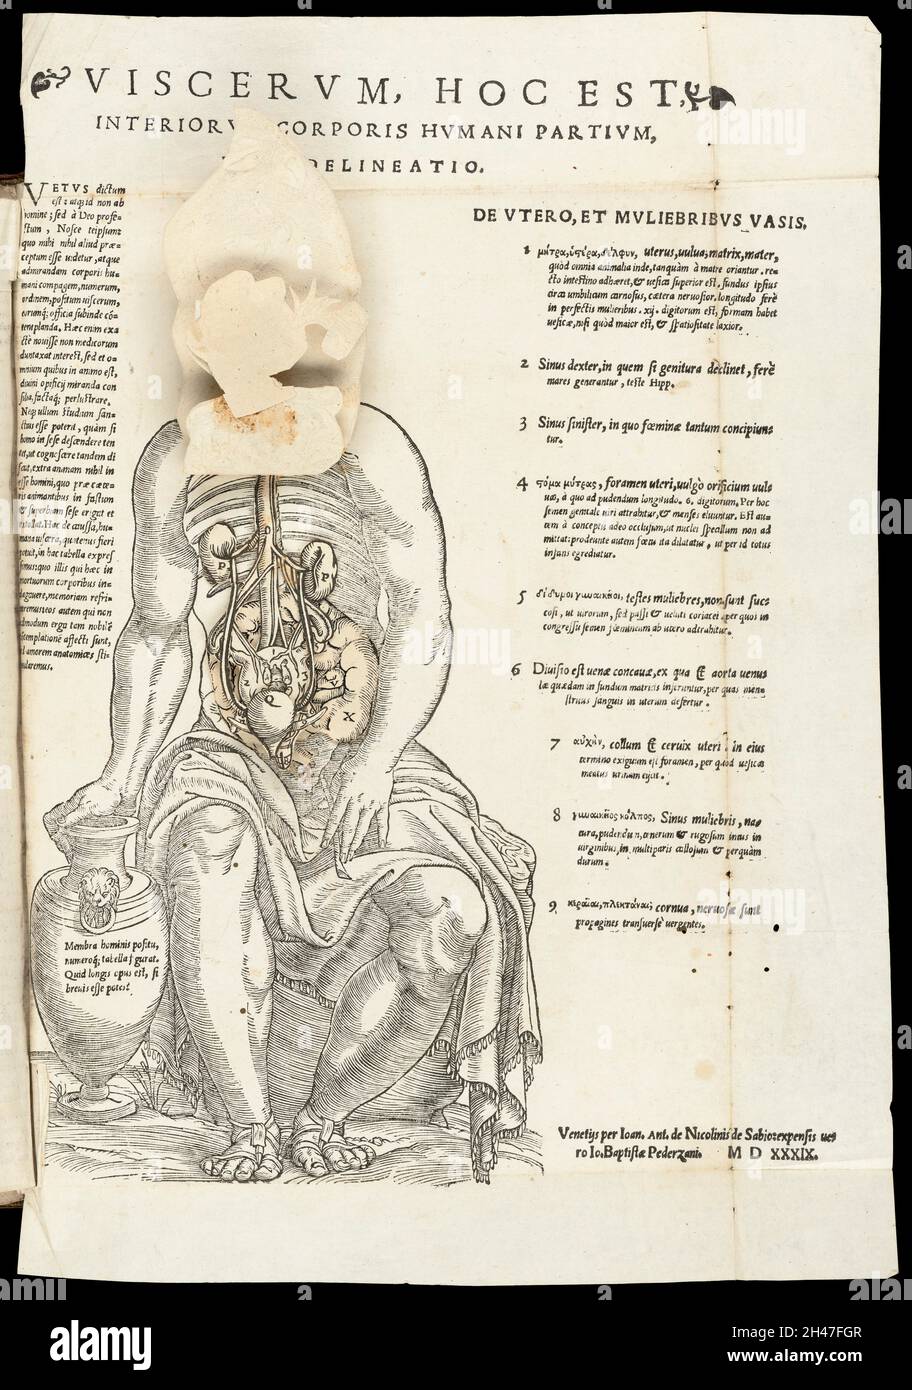 VISCERVM, HOC EST,
INTERIORV CORPORIS HVMANI PARTIVM,
DELINEATIO.
VETVS dictum
est: atq; id non ab
homine; sed à Deo profe-
ctum, Nosce teipsum:
quo mihi nihil aliud præ-
ceptum esse videtur, atque
admirandam corporis hu-
mani compagem, numerum,
ordinem, positum viscerum,
eorumq; officia subinde cō-
templanda. Hæc enim exa
ctè novisse non medicorum
duntaxat interest, sed et o-
mnium quibus in animo est,
divini opificij miranda con
silia, factaq; perlustrare.
Neq; ullum studium san-
ctius esse poterit, quàm si
homo in sese descendere ten
tet, ut cognoscere tandem di
scat, extra animam nihil in
esse homini, quo præ cæte-
ris animantibus in fastum
& superbiam sese erigat et
DE VTERO, ET MVLIEBRIBVS VASIS.
1 μήτρα, ὑστέρα, δέλφυν, uterus, uulua, matrix, mater,
quòd omnia animalia inde, tanquàm à matre oriantur. re-
cto intestino adhæret, & uesica superior est. fundus ipsius
circa umbilicum carnosus, cætera neruosior. longitudo ferè
in perfectis mulieribus. xij. digitorum est, formam habet
uesicæ, nisi quòd maior est, & spatiositate laxior.
2 Sinus dexter, in quem si genitura declinet, ferè
mares generantur, teste Hipp.
3 Sinus sinister, in quo fœminæ tantum concipiun-
tur.
4 στόμα μύτρας, foramen uteri, uulgò orificium uul-
uæ, à quo ad pudendum longitudo. 6. digitorum. Per hoc
semen genitale uiri attrahitur, & menses eiuuntur. Est au-
tem à conceptu adeo occlusum, ut nec specillum non ad
mittat: prodeunte autem fœtu ita dilatatur, ut per id totus
infans egrediatur.
5 δίδυμοι γυναικεῖοι, testes muliebres, non sunt suc-
cosi, ut uirorum, sed passi & ueluti coriacei. per quos in
congressu semen fœmineum ab utero attrahitur.
6 Diuisio est uenæ concauæ, ex qua & aorta uenu
læ quædam in fundum matricis inseruntur, per quas men-
struus sanguis in uterum defertur.
7 αὐχὴν, collum & ceruix uteri. in eius
termino exiguum est foramen, per quod uesicæ
meatus urinam eijcit.
8 γυναικεῖος κόλπος, Sinus muliebris, na-
tura, pudendum, tenerum & rugosum intus in
uirginibus, in multiparis callosum & perquàm
durum.
9 κεραῖαι, πλεκτάναι; cornua, neruosæ sunt
propagines transuersè uergentes.
Membra hominis positu,
numeroq; tabella figurat.
Quid longis opus est, si
brevis esse potest
Venetijs per Ioan. Ant. de Nicolinis de Sabio: expensis ue-
ro Io. Baptistæ Pederzani. M D XXXIX.
alamy
Image ID: 2H47FGR
www.alamy.com